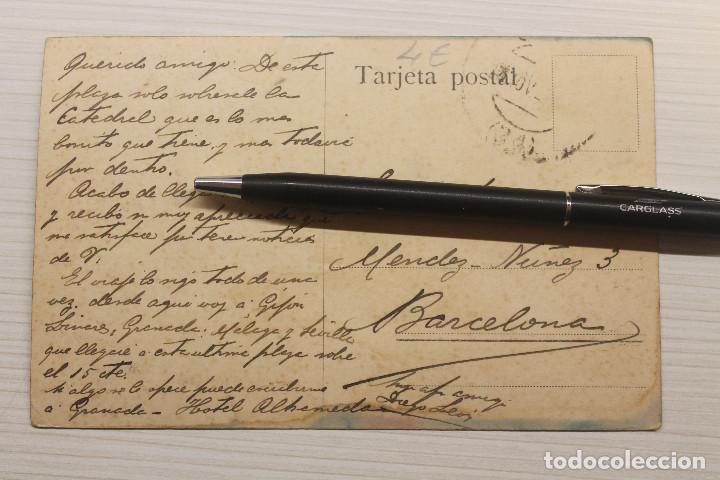 4 €
Tarjeta postal
Querido amigo: De esta
plaza solo sobresale la
Catedral que es lo mas
bonito que tiene, y mas todavia
por dentro.
Acabo de
y recibo su muy apreciada que
me satisface por tener noticias
de V.
El viaje lo sigo todo de una
vez. desde aqui voy á Gijón
Linares, Granada, Málaga y Sevilla
que llegaré a esta ultima plaza sobre
el 15 cte.
Si algo se le ofrece puede escribirme
á Granada - Hotel Alhameda
Mendez-Nuñez 3
Barcelona
amigo
Diego
CARGLASS
todocoleccion.net